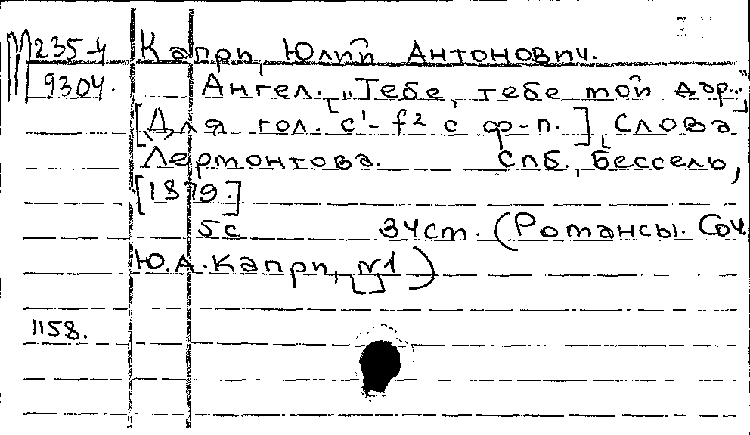 М 235-4 Капри, Юлий Антонович.
9304. Ангел. "Тебе, тебе мой дар.."
[Для гол. c¹-f² с ф-п.] Слова
Лермонтова. Спб., Бессель,
[1879.]
5с 34ст. (Романсы. Соч.
Ю.А. Капри, №1)
1158.